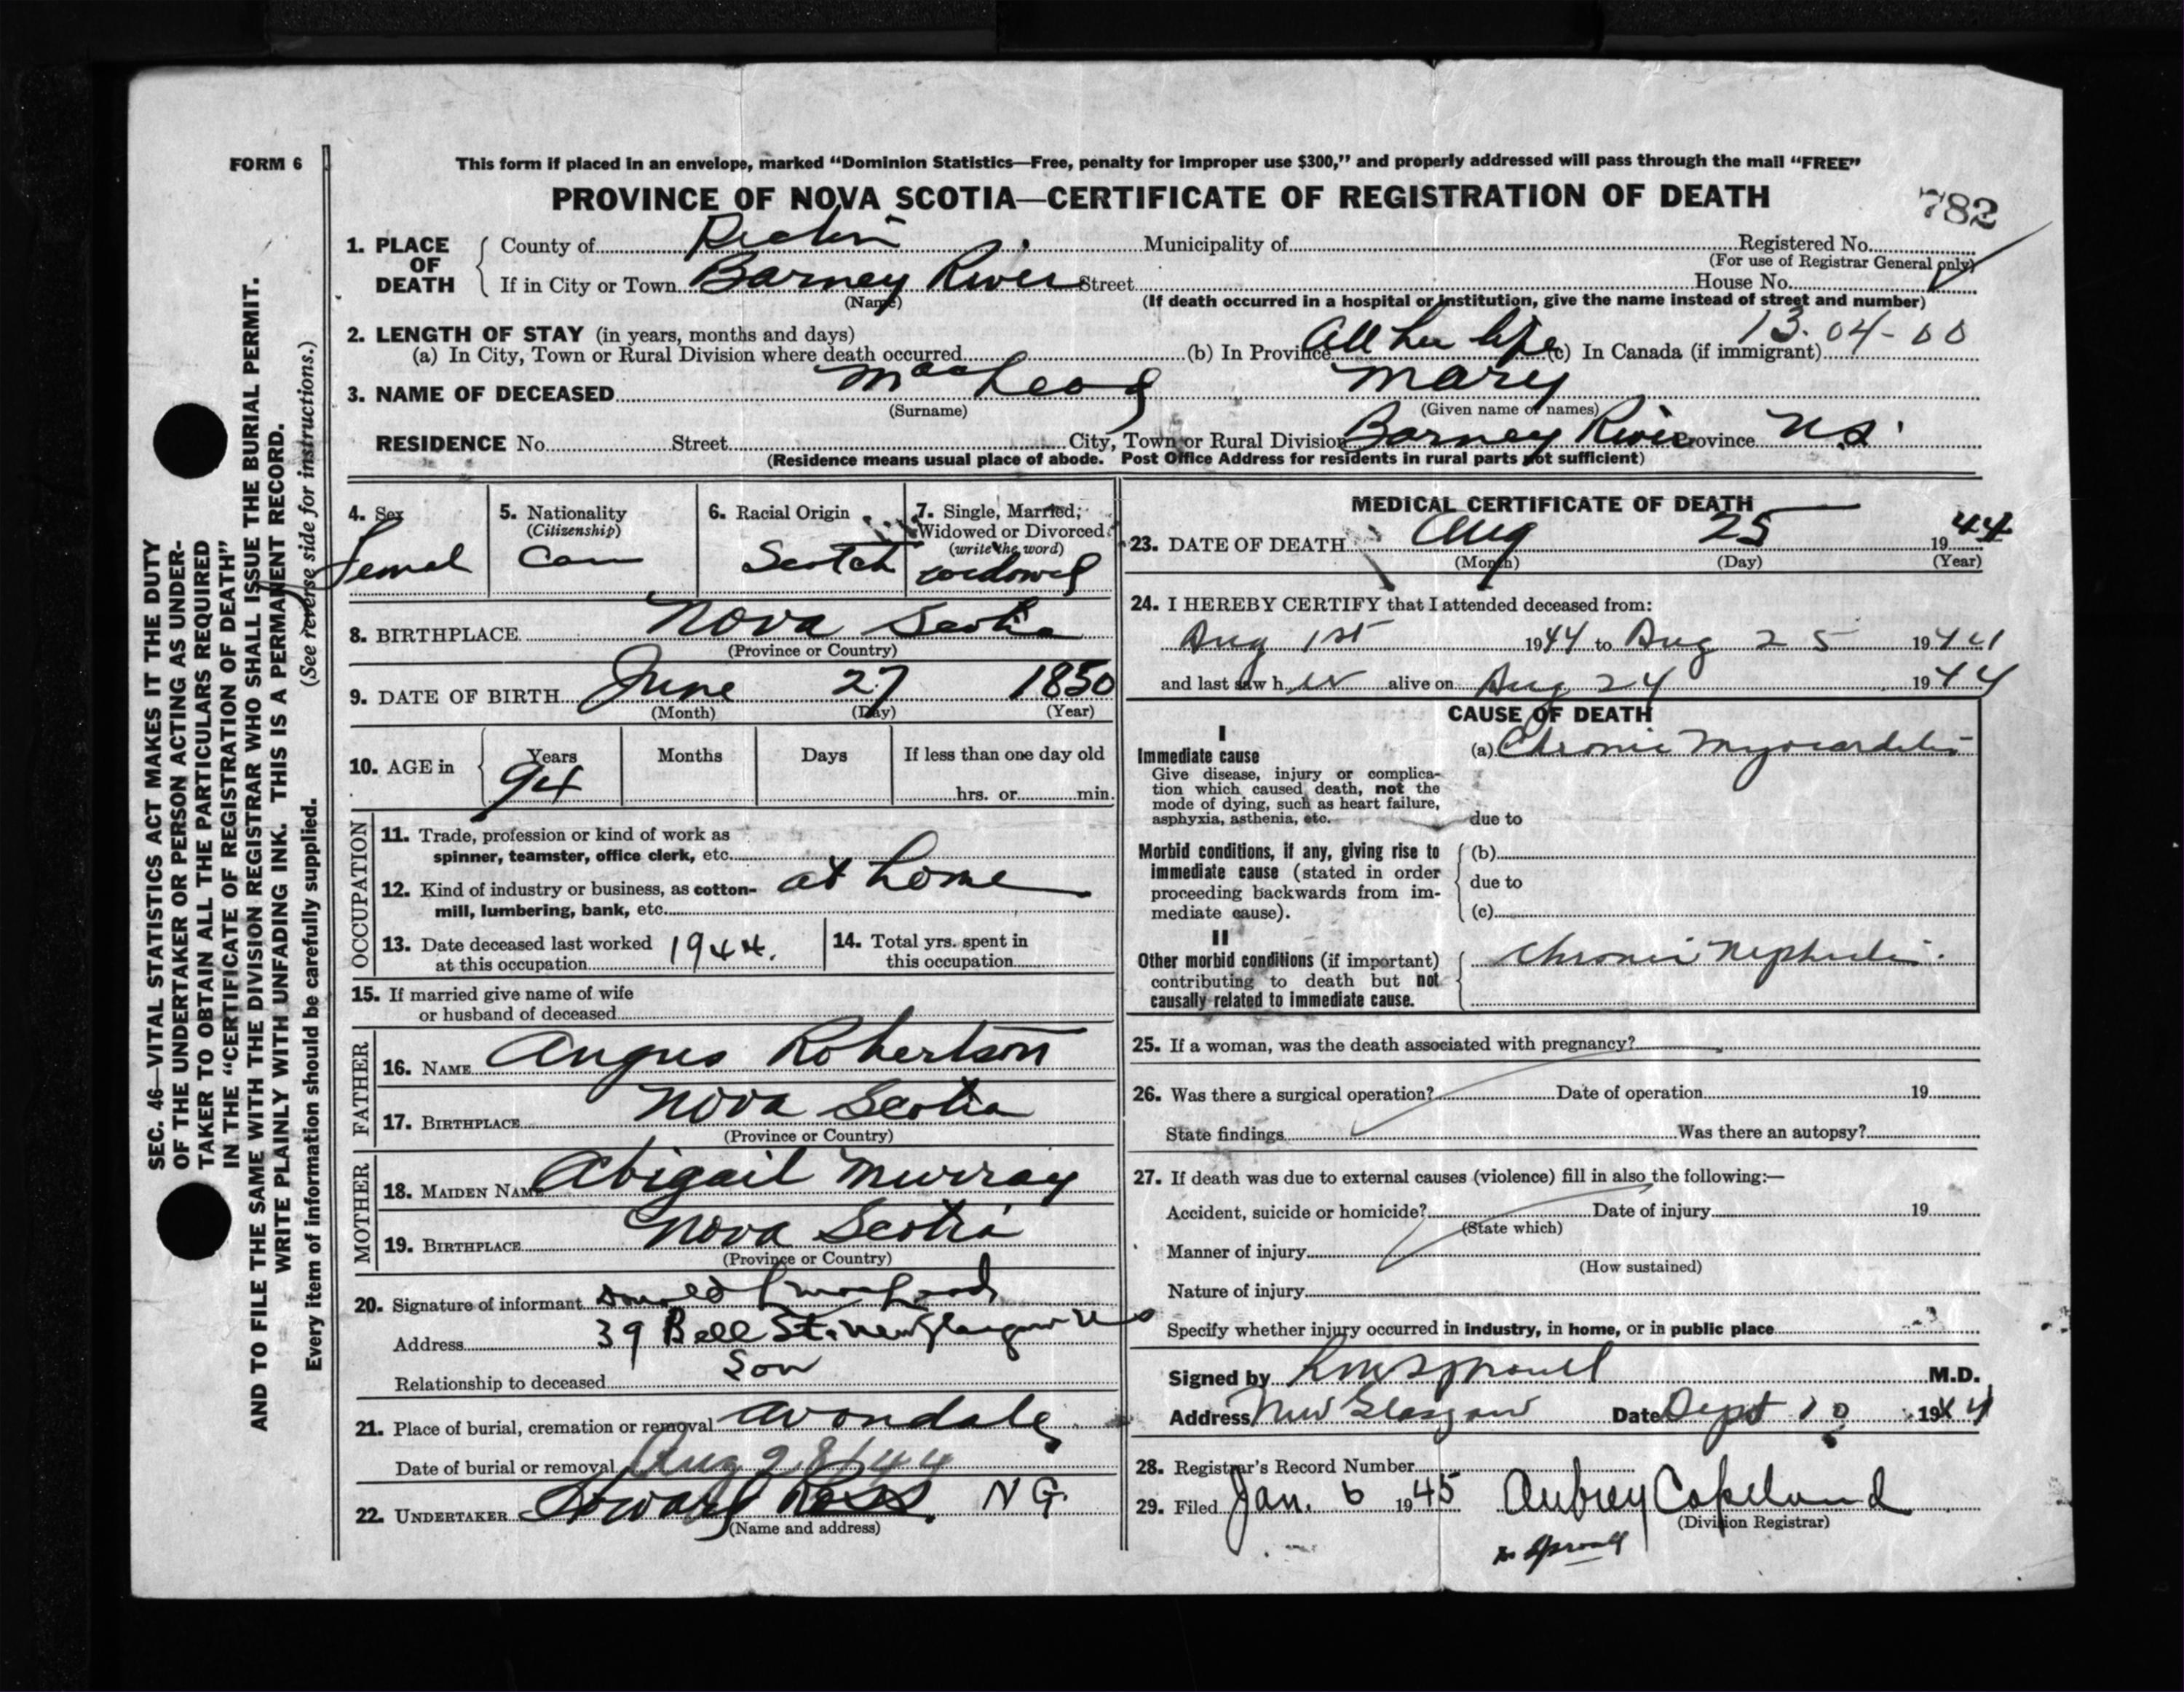 FORM 6
This form if placed in an envelope, marked "Dominion Statistics—Free, penalty for improper use $300," and properly addressed will pass through the mail "FREE"
PROVINCE OF NOVA SCOTIA—CERTIFICATE OF REGISTRATION OF DEATH
782
1. PLACE OF DEATH
County of Pictou Municipality of Registered No.
(For use of Registrar General only)
If in City or Town Barney River Street House No.
(Name) (If death occurred in a hospital or institution, give the name instead of street and number)
2. LENGTH OF STAY (in years, months and days) 13.04-00
(a) In City, Town or Rural Division where death occurred (b) In Province All her life (c) In Canada (if immigrant)
3. NAME OF DECEASED MacLeod Mary
(Surname) (Given name or names)
RESIDENCE No. Street City, Town or Rural Division Barney River Province N.S.
(Residence means usual place of abode. Post Office Address for residents in rural parts not sufficient)
4. Sex Femal
5. Nationality (Citizenship) Can
6. Racial Origin Scotch
7. Single, Married, Widowed or Divorced (write the word) widowed
8. BIRTHPLACE Nova Scotia
(Province or Country)
9. DATE OF BIRTH June 27 1850
(Month) (Day) (Year)
10. AGE in Years 94 Months Days If less than one day old
hrs. or min.
OCCUPATION
11. Trade, profession or kind of work as
spinner, teamster, office clerk, etc.
12. Kind of industry or business, as cotton- at home
mill, lumbering, bank, etc.
13. Date deceased last worked at this occupation 1944.
14. Total yrs. spent in this occupation
15. If married give name of wife
or husband of deceased
FATHER
16. NAME Angus Robertson
17. BIRTHPLACE Nova Scotia
(Province or Country)
MOTHER
18. MAIDEN NAME Abigail Murray
19. BIRTHPLACE Nova Scotia
(Province or Country)
20. Signature of informant Donald
Address 39 Bell St. New Glasgow NS
Relationship to deceased Son
21. Place of burial, cremation or removal Avondale
Date of burial or removal Aug 28/44
22. UNDERTAKER Howard Ross NG
(Name and address)
MEDICAL CERTIFICATE OF DEATH
23. DATE OF DEATH Aug 25 1944
(Month) (Day) (Year)
24. I HEREBY CERTIFY that I attended deceased from:
Aug 1st 1944 to Aug 25 1944
and last saw her alive on Aug 24 1944
CAUSE OF DEATH
I
Immediate cause (a) Chronic Myocarditis
Give disease, injury or complica-
tion which caused death, not the
mode of dying, such as heart failure,
asphyxia, asthenia, etc. due to
Morbid conditions, if any, giving rise to (b)
immediate cause (stated in order due to
proceeding backwards from im-
mediate cause). (c)
II
Other morbid conditions (if important) Chronic Nephritis.
contributing to death but not
causally related to immediate cause.
25. If a woman, was the death associated with pregnancy?
26. Was there a surgical operation? Date of operation 19
State findings Was there an autopsy?
27. If death was due to external causes (violence) fill in also the following:—
Accident, suicide or homicide? Date of injury 19
(State which)
Manner of injury
(How sustained)
Nature of injury
Specify whether injury occurred in industry, in home, or in public place
Signed by Sproull M.D.
Address New Glasgow Date Sept 10 1944
28. Registrar's Record Number
29. Filed Jan. 6 1945 Aubrey Copeland
(Division Registrar)
Sproull
SEC. 46—VITAL STATISTICS ACT MAKES IT THE DUTY
OF THE UNDERTAKER OR PERSON ACTING AS UNDER-
TAKER TO OBTAIN ALL THE PARTICULARS REQUIRED
IN THE "CERTIFICATE OF REGISTRATION OF DEATH"
AND TO FILE THE SAME WITH THE DIVISION REGISTRAR WHO SHALL ISSUE THE BURIAL PERMIT.
WRITE PLAINLY WITH UNFADING INK. THIS IS A PERMANENT RECORD.
Every item of information should be carefully supplied. (See reverse side for instructions.)